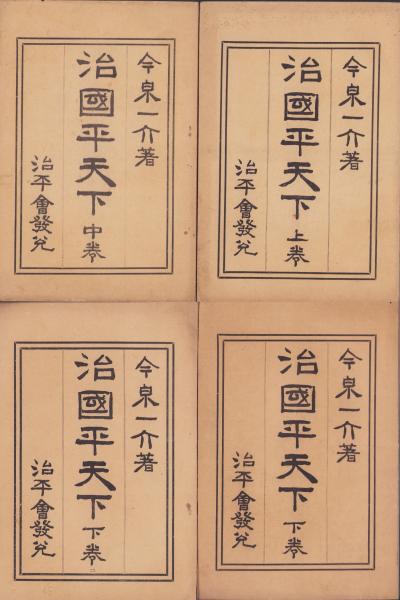 今泉一介著
治國平天下 上卷
治平會發兌
今泉一介著
治國平天下 中卷
治平會發兌
今泉一介著
治國平天下 下卷
治平會發兌
今泉一介著
治國平天下 下卷二
治平會發兌